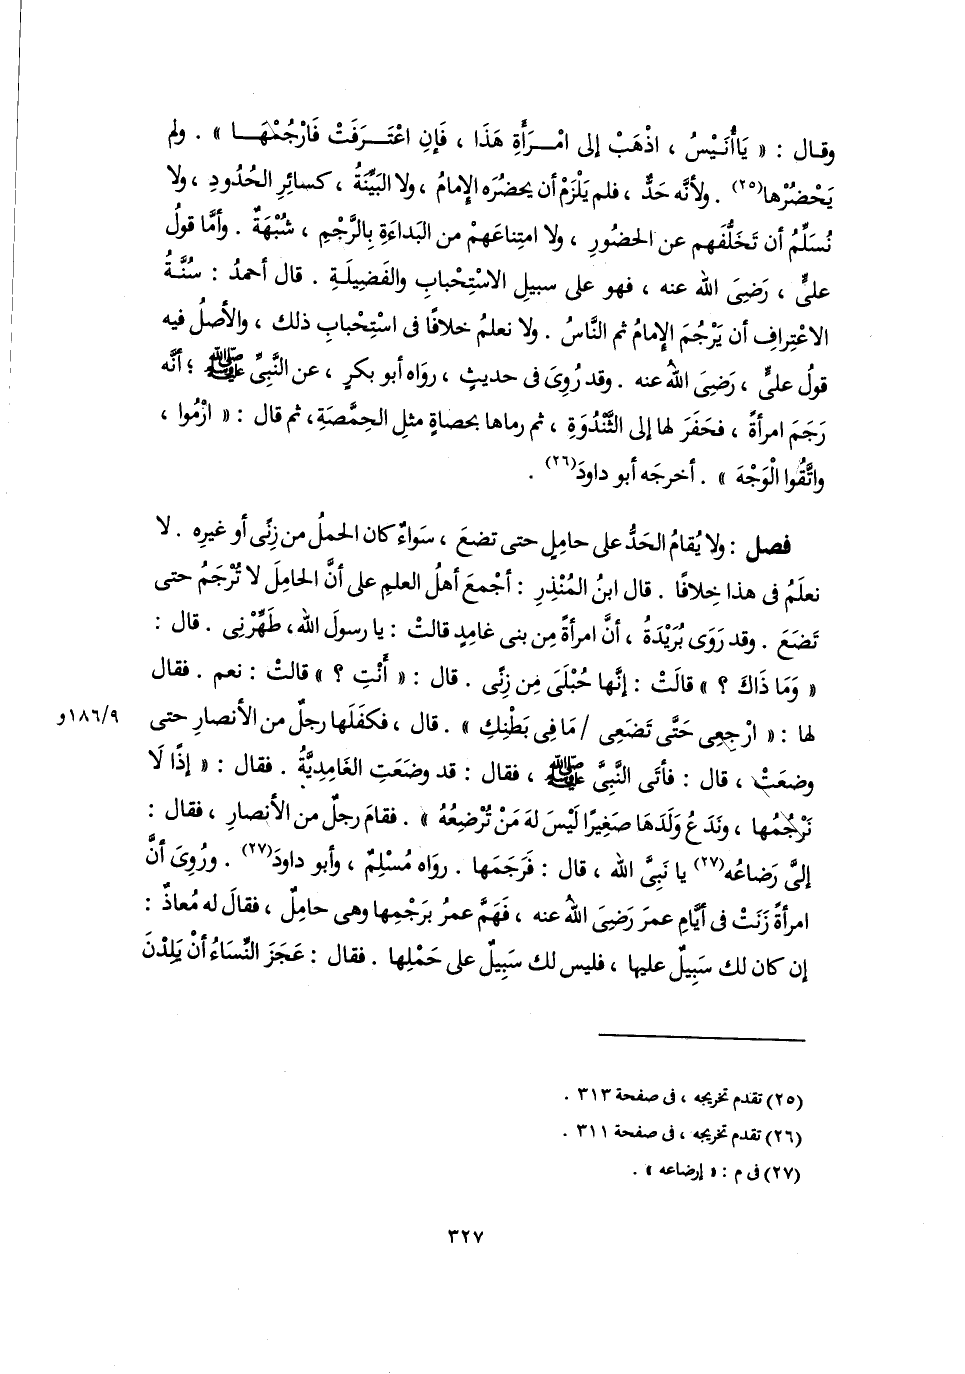 وقال : « يَاأُنَيْسُ ، اذْهَبْ إلى امْـرَأَةِ هَذَا ، فَإنِ اعْتَـرَفَتْ فَارْجُمْهَـا » . ولم
يَحْضُرْها(٢٥) . ولأنَّه حَدٌّ ، فلم يَلْزَمْ أن يحضُرَه الإمامُ ، ولا البَيِّنَةُ ، كسائرِ الحُدُودِ ، ولا
نُسَلِّمُ أن تَخَلُّفَهم عن الحضُورِ ، ولا امتِناعَهمْ من البَداءَةِ بالرَّجْمِ ، شُبْهَةٌ . وأمَّا قولُ
علىٍّ ، رَضِىَ اللهُ عنه ، فهو على سبيلِ الاسْتِحْبابِ والفَضِيلَةِ . قال أحمدُ : سُنَّةُ
الاعْتِرافِ أن يَرْجُمَ الإمامُ ثم النَّاسُ . ولا نعلمُ خلافًا فى اسْتِحْبابِ ذلك ، والأصلُ فيه
قولُ علىٍّ ، رَضِىَ اللهُ عنه . وقد رُوِىَ فى حديثٍ ، رواه أبو بكرٍ ، عن النَّبِىِّ ﷺ ؛ أنَّه
رَجَمَ امرأةً ، فحَفَرَ لها إلى الثَّنْدُوَةِ ، ثم رماها بحصاةٍ مثلِ الحِمَّصَةِ ، ثم قال : « ارْمُوا ،
واتَّقُوا الْوَجْهَ » . أخرجَه أبو داودَ(٢٦) .
فصل : ولا يُقامُ الحَدُّ على حاملٍ حتى تضعَ ، سَواءٌ كان الحملُ من زِنًى أو غيرِه . لا
نعلَمُ فى هذا خِلافًا . قال ابنُ المُنْذِرِ : أجْمعَ أهلُ العلمِ على أنَّ الحاملَ لا تُرْجَمُ حتى
تَضَعَ . وقد رَوَى بُرَيْدَةُ ، أنَّ امرأةً مِن بنى غامِدٍ قالتْ : يا رسولَ الله ، طَهِّرْنِى . قال :
« وَمَا ذَاكَ ؟ » قالَتْ : إنَّها حُبْلَى مِن زِنًى . قال : « أَنْتِ ؟ » قالتْ : نعم . فقال
لها : « ارْجِعِى حَتَّى تَضَعِى / مَا فِى بَطْنِكِ » . قال ، فكفَلَها رجلٌ من الأنصارِ حتى
٩/١٨٦و
وضعَتْ ، قال : فأتَى النَّبِىَّ ﷺ ، فقال : قد وضَعَتِ الغَامِدِيَّةُ . فقال : « إذًا لَا
نَرْجُمُها ، ونَدَعُ وَلَدَهَا صَغِيرًا لَيْسَ لَهَ مَنْ تُرْضِعُهُ » . فقامَ رجلٌ من الأنصارِ ، فقال :
إلىَّ رَضاعُه(٢٧) يا نَبِىَّ الله ، قال : فَرَجَمَها . رواه مُسْلِمٌ ، وأبو داودَ(٢٧) . ورُوِىَ أنَّ
امرأةً زَنَتْ فى أيَّامِ عمرَ رَضِىَ اللهُ عنه ، فَهَمَّ عمرُ برَجْمِها وهى حاملٌ ، فقالَ له مُعاذٌ :
إن كان لك سَبِيلٌ عليها ، فليس لك سَبِيلٌ على حَمْلِها . فقال : عَجَزَ النِّسَاءُ أنْ يَلِدْنَ
(٢٥) تقدم تخريجه ، فى صفحة ٣١٣ .
(٢٦) تقدم تخريجه ، فى صفحة ٣١١ .
(٢٧) فى م : « إرضاعه » .
٣٢٧